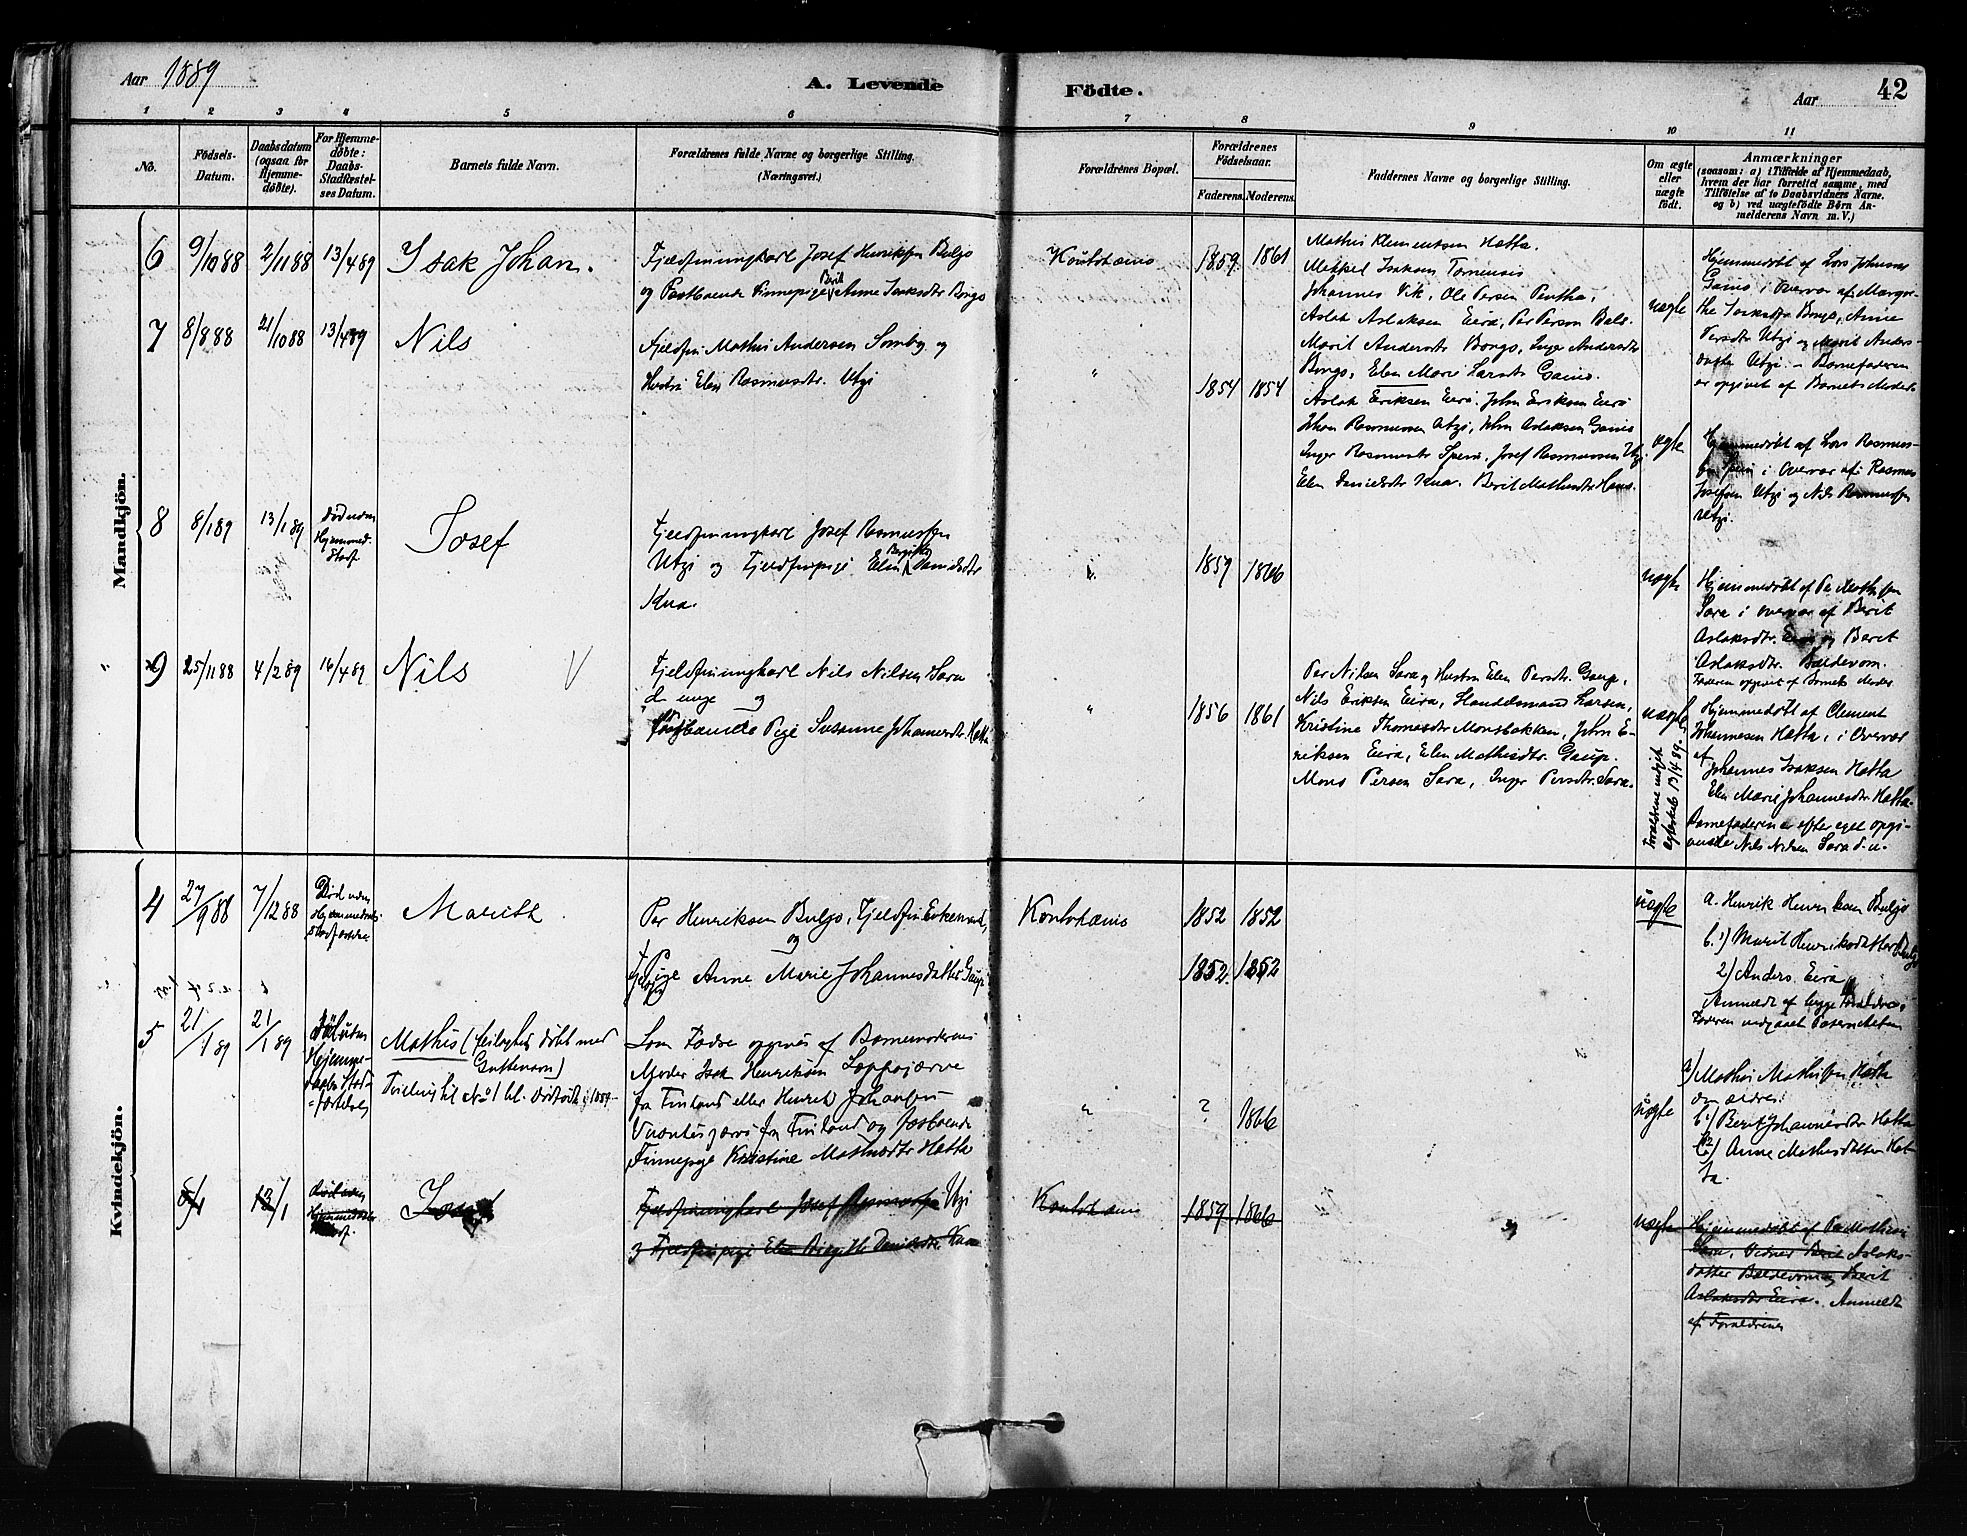 Aar 1889
A. Levende Födte.
Aar
42
1 2 3 4 5 6 7 8 9 10 11
No.
Födsels-Datum.
Daabsdatum (ogsaa for Hjemmedøbte).
For Hjemmedøbte: Daabs-Stadfæstelses Datum.
Barnets fulde Navn.
Forældrenes fulde Navne og borgerlige Stilling.
(Næringsvei.)
Forældrenes Bopæl.
Forældrenes Födselsaar.
Faderens.
Moderens.
Faddernes Navne og borgerlige Stilling.
Om ægte eller uægte født.
Anmærkninger
(saasom: a) i Tilfælde af Hjemmedaab, hvem der har forrettet samme, med Tilføielse af to Daabsvidners Navne, og b) ved uægtefödte Børn Anmelderens Navn m. V.)
Mandkjön.
6 9/10 88 2/11 88 13/4 89 Isak Johan.
Fjeldfinungkarl Josef Henriksen Buljo
og Fastboende Finnepige Berit Anne Isaksdtr Bongo
Koutokæino 1859 1861
Mathis Klementsen Hætta.
Mikkel Isaksen Tornensis
Johannes Vik, Ole Persen Pentha,
Aslak Aslaksen Eira, Per Persen Bals.
Marit Andersdtr Bongo, Inger Andersdtr
Bongo, Elen Marie Larsdtr Gaino.
uægte
Hjemmedøbt af Lars Johnsen
Gaino i Overvær af Margre-
the Isaksdtr Bongo, Anne
Persdtr Utzi og Marit Anders-
datter Utzi. – Barnefaderen
er opgivet af Barnets Moder
7 8/8 88 21/10 88 13/4 89 Nils
Fjeldfin Mathis Andersen Somby og
Hustru Elen Rasmusdtr. Utzi
" 1854 1854
Aslak Eriksen Eira. John Eriksen Eira
Johan Rasmussen Utzi, John Aslaksen Gaino
Inger Rasmusdtr Spein, Josef Rasmussen Utzi
Elen Danielsdtr Kua. Berit Mathisdtr
ægte
Hjemmedøbt af Lars Rasmus-
sen Spein i Overvær af Rasmus
Josefsen Utzi og Nils Rasmussen
Utzi.
8 8/1 89 13/1 89 Død uden
Hjemmed.
Stadf.
Josef
Fjeldfinungkarl Josef Rasmussen
Utzi og Fjeldfinpige Elen Birgithe Danielsdtr
Kua.
" 1859 1866
uægte
Hjemmedøbt af Per Mathisen
Sara i Overvær af Berit
Aslaksdtr. Eira og Berit
Aslaksdtr. Bældevom.
Faderen opgivet af Barnets Moder
9 25/11 88 4/2 89 16/4 89 Nils V
Fjeldfinungkarl Nils Nilsen Sara
d. unge og
fastboende Pige Susanne Johannesdtr Hætta
" 1856 1861
Per Nilsen Sara og Hustru Elen Persdtr. Gaup,
Nils Eriksen Eira, Handelsmand Larsen,
Kristine Thomasdtr Monsbakken, John E-
riksen Eira, Elen Mathisdtr. Gaup.
Mons Persen Sara, Inger Persdtr. Sara.
uægte
Forældrene viejet
13/4 89.
Hjemmedøbt af Clement
Johannesen Hætta, i Overvær
af
Johannes Isaksen Hætta
Elen Marie Johannesdtr Hætta.
Barnefaderen er efter eget opgi-
vende Nils Nilsen Sara d. u.
Kvindekjön.
4 27/9 88 7/12 88 Død uden
Marith
Per Henriksen Buljo, Fjeldfin Enkemand,
og
Pige Anne Marie Johannesdatter Gaup
Koutokæino 1852 1852
1852. 1852
uægte
a. Henrik Henriksen Buljo
b. 1) Marit Henriksdatter Buljo
2) Anders Eira
Anmeldt af begge Forældrene,
Faderen vedgaaet Paterniteten
5 21/1 89 21/1 89 Død uden
Hjemme-
daabs Stad-
fæstelse
Mathis (feilagtig døbt med
Guttenavn)
Tvilling til No 1 bl. dødfødte i 1889
Som Fader opgives af Barnemoderens
Moder Isak Henriksen Soppajærve
fra Finland eller Henrik Johansen
Vuontesjærvi fra Finland og fastboende
Finnepige Kristine Mathisdtr Hætta
" ? 1866
uægte
a) Mathis Mathisen Hætta
den ældre.
b. 1) Berit Johannesdtr Hætta
2) Anne Mathisdatter Hæt-
ta.
13/1
Josef
Fjeldfinungkarl Josef Rasmussen Utzi
og Fjeldfinpige Elen Birgithe Danielsdtr. Kua
Koutokæino 1859 1866
uægte
Hjemmedøbt af Per Mathisen
Sara, Vidner Berit Aslaks-
datter Bældevom og Berit
Aslaksdtr Eira. Anmeldt
af Forældrene